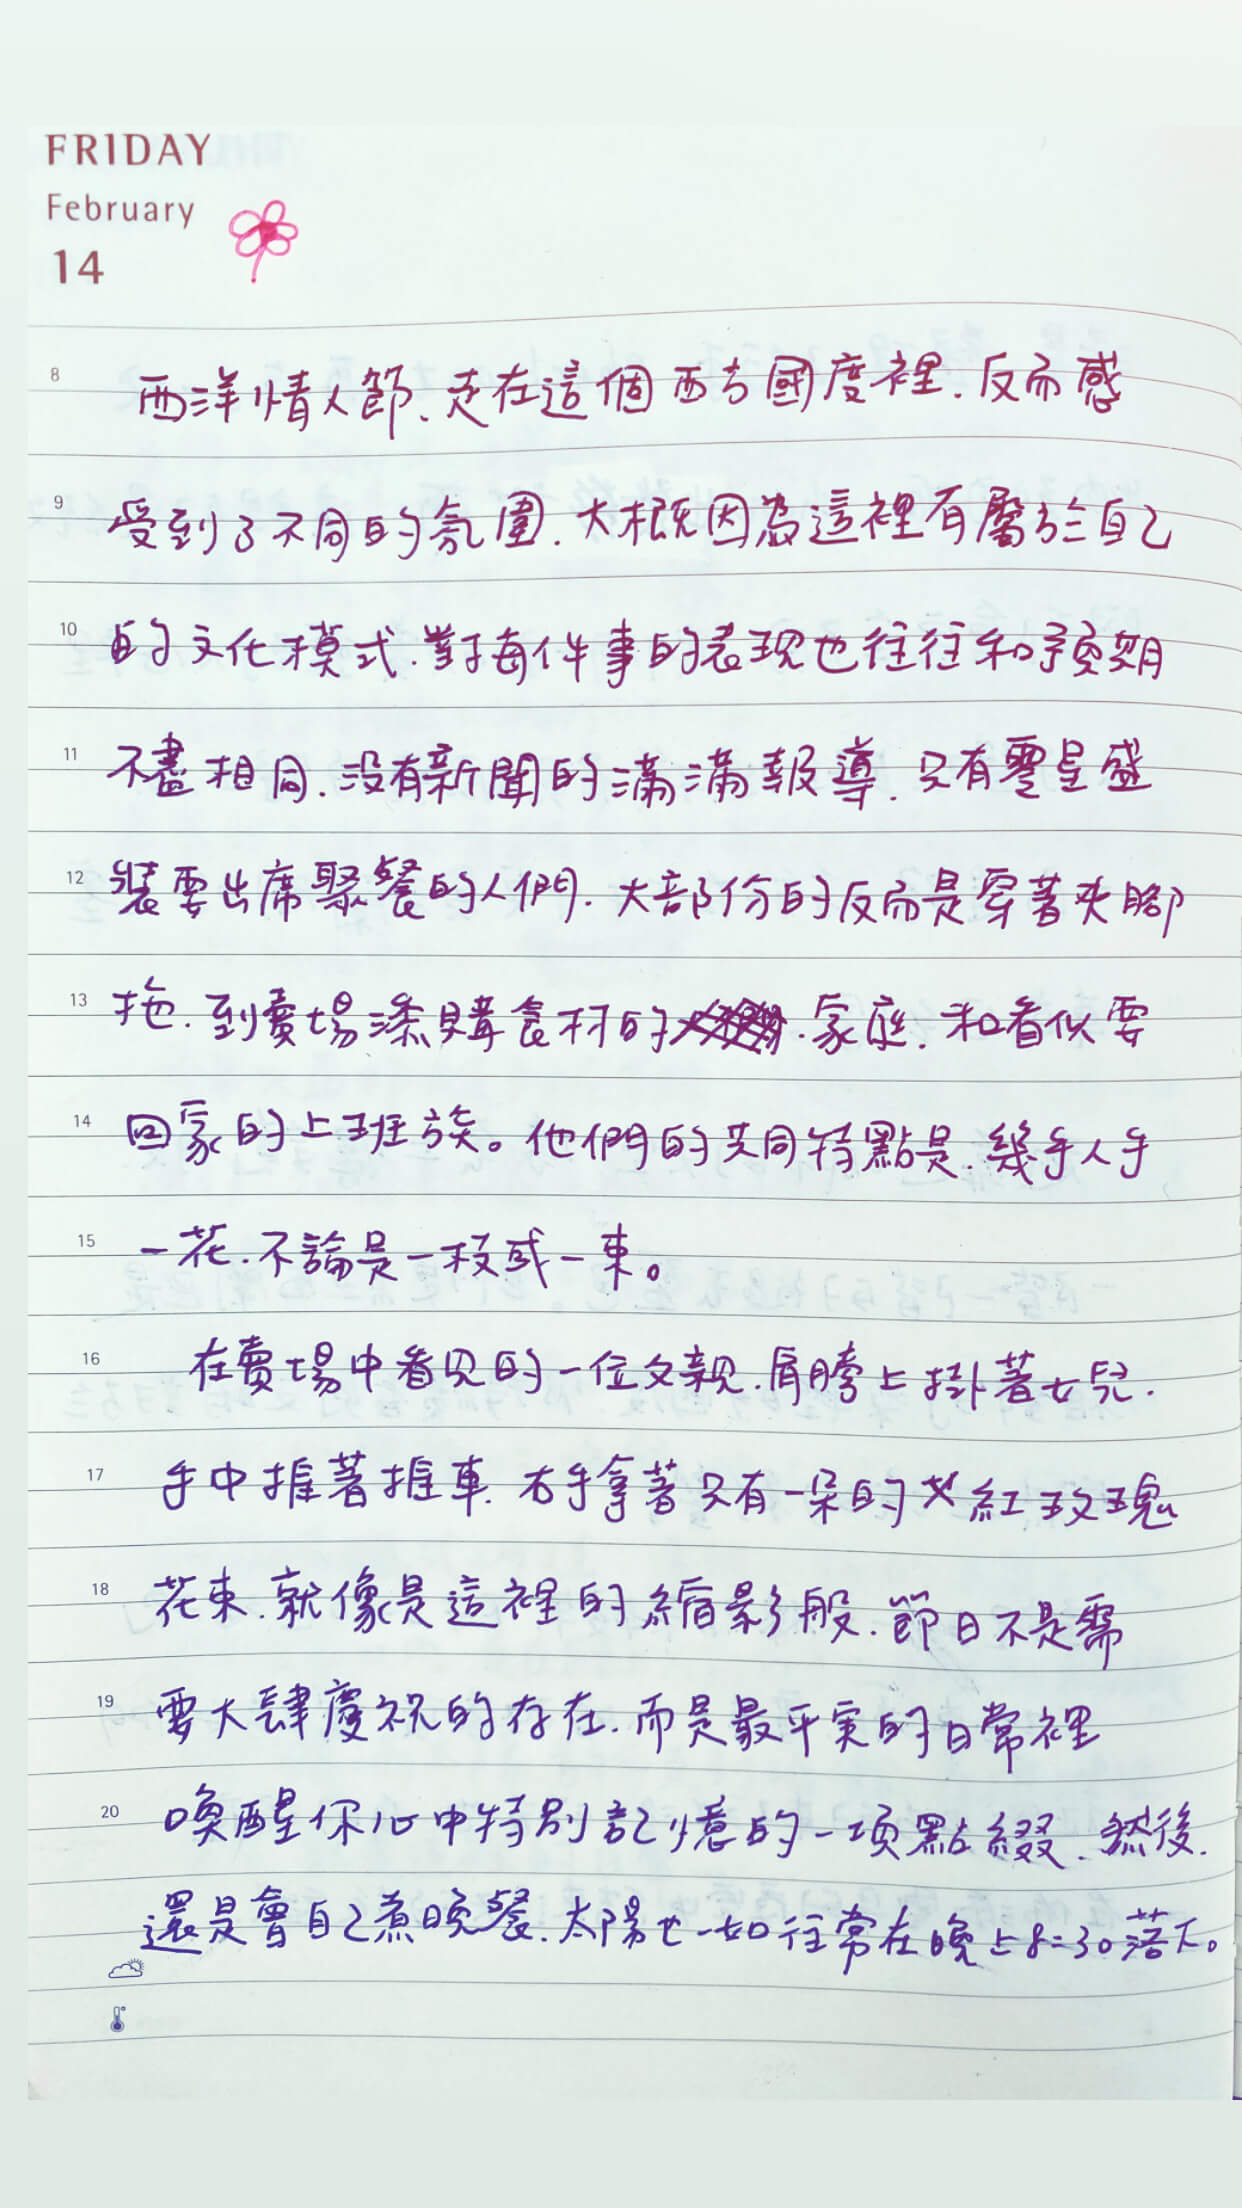 FRIDAY
February
14
8 西洋情人節、走在這個西方國度裡、反而感
9 受到了不同的氛圍、大概因為這裡有屬於自己
10 的文化模式、對每件事的表現也往往和預期
11 不盡相同、沒有新聞的滿滿報導、只有零星盛
12 裝要出席聚餐的人們、大部份的反而是穿著夾腳
13 拖、到賣場添購食材的、家庭、和看似要
14 回家的上班族。他們的共同特點是、幾乎人手
15 一花、不論是一枝或一束。
16 在賣場中看見的一位父親、肩膀上掛著女兒、
17 手中推著推車、右手拿著只有一朵的紅玫瑰
18 花束、就像是這裡的縮影般、節日不是需
19 要大肆慶祝的存在、而是最平實的日常裡
20 喚醒你心中特別記憶的一項點綴、然後、
還是會自己煮晚餐、太陽也一如往常在晚上8:30落下。